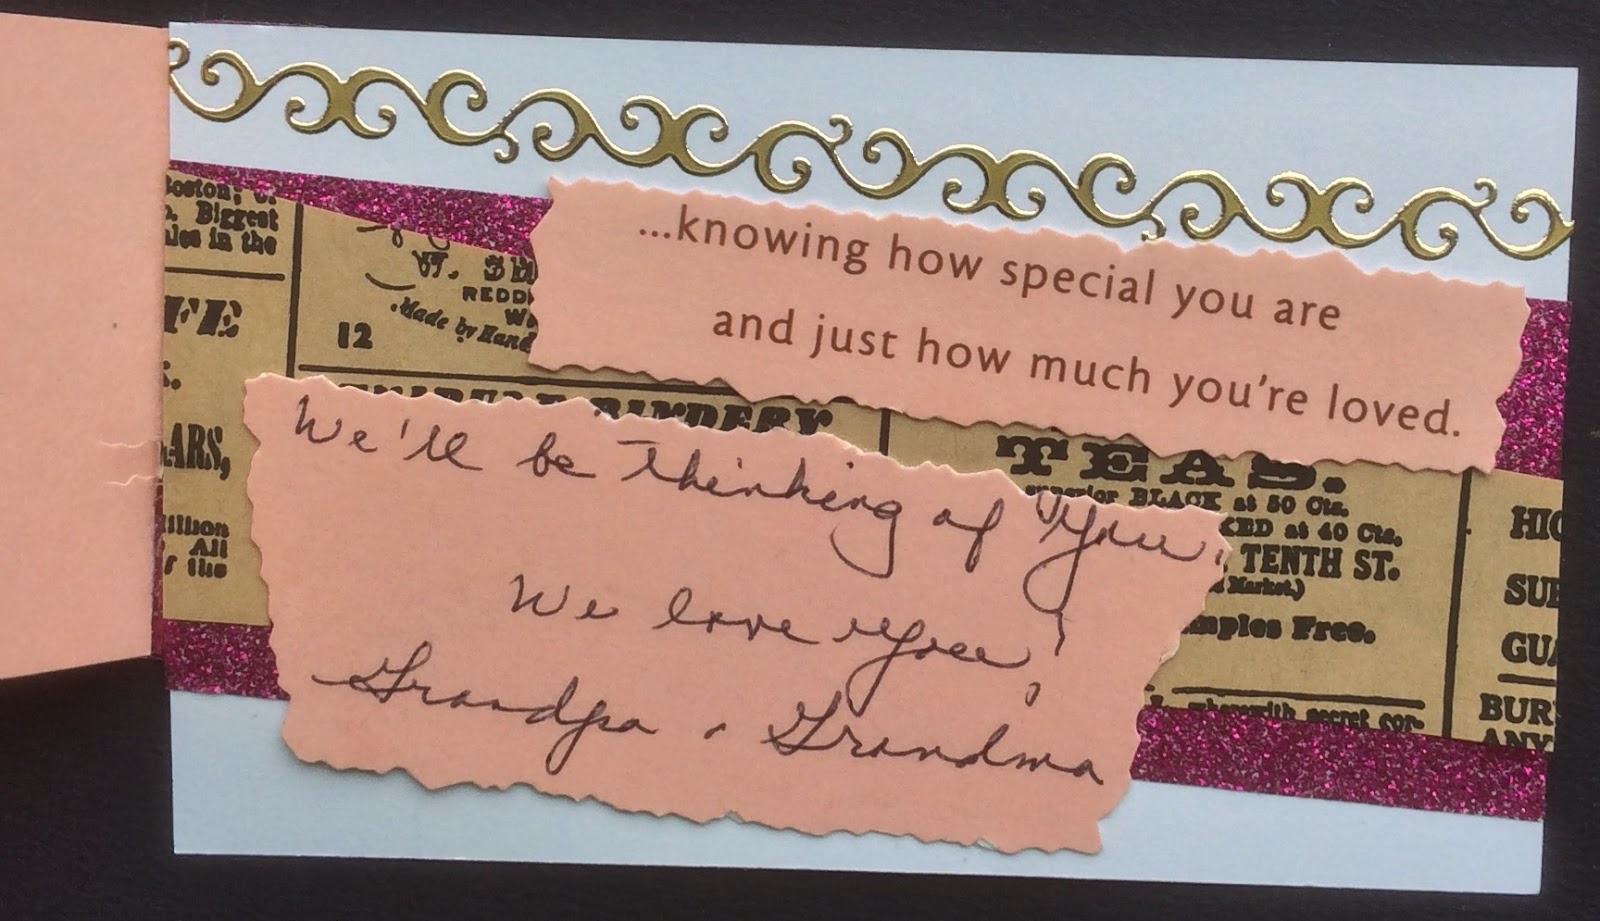 ...knowing how special you are
and just how much you're loved.
We'll be thinking of you,
We love you!
Grandpa & Grandma
Boston;
Biggest
in the
FE
12
REDD
Made by Hand
ARS,
Million
All
of the
BINDERY
TEAS.
Superior BLACK at 50 Cts.
KED at 40 Cts.
TENTH ST.
Market.)
mples Free.
wherewith secret cor-
HIG
SUP
GUA
BUR
ANY